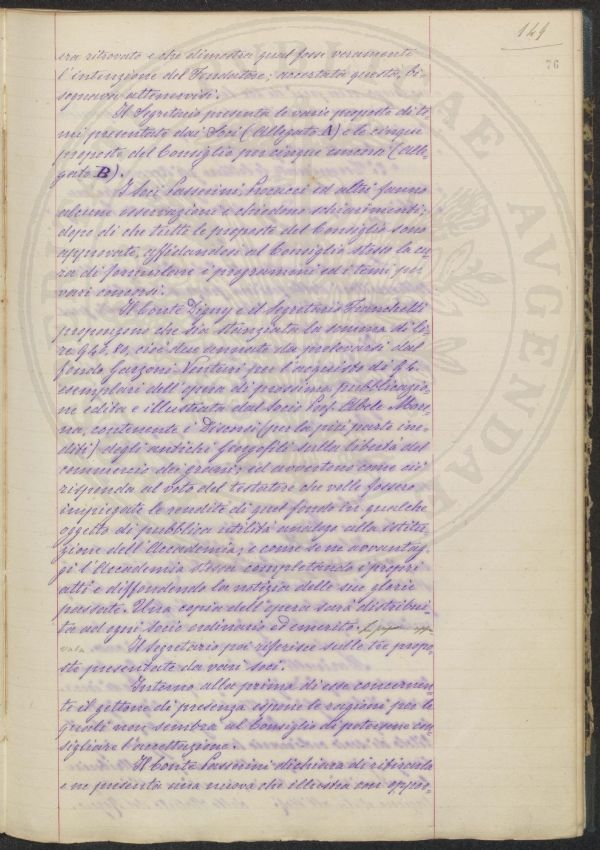 149
76
sia ritrovato e che dimostra qual fosse veramente
l'intenzione del Fondatore; accertata questa, bi-
sognava attenervisi.
Il Segretario presenta le varie proposte di te-
mi presentate dai Soci (Allegato A) e le cinque
proposte del Consiglio per cinque concorsi (Alle-
gato B).
I Soci Passerini, Pucacci ed altri fanno
alcune osservazioni e chiedono schiarimenti;
dopo di che tutte le proposte del Consiglio sono
approvate, affidandosi al Consiglio stesso la cu-
ra di formulare i programmi ed i temi pei
vari concorsi.
Il Conte Digny e il Segretario Franchetti
propongono che sia stanziata la somma di li-
re 946.80, cioè due annate da prelevarsi dal
fondo Garzoni-Venturi per l'acquisto di
esemplari dell'opera di prossima pubblicazio-
ne edita e illustrata dal Socio Prof. Abele More-
na, contenente i Discorsi (per la più parte ine-
diti) degli antichi Georgofili sulla libertà del
commercio dei grani; ed avvertono come ciò
risponda al voto del testatore che volle fossero
impiegate le rendite di quel fondo in qualche
oggetto di pubblica utilità analogo alla istitu-
zione dell'Accademia; e come se ne avvantag-
gi l'Accademia stessa completando i propri
atti e diffondendo la notizia delle sue glorie
passate. Una copia dell'opera sarà distribui-
ta ad ogni socio ordinario ed emerito. appro-
vata. Il Segretario poi riferisce sulle tre propo-
ste presentate da vari Soci.
Intorno alla prima di esse concernen-
te il gettone di presenza espone le ragioni per le
quali non sembra al Consiglio di poterne con-
sigliare l'accettazione.
Il Conte Passerini dichiara di ritirarla
e ne presenta una nuova che illustra con oppor-